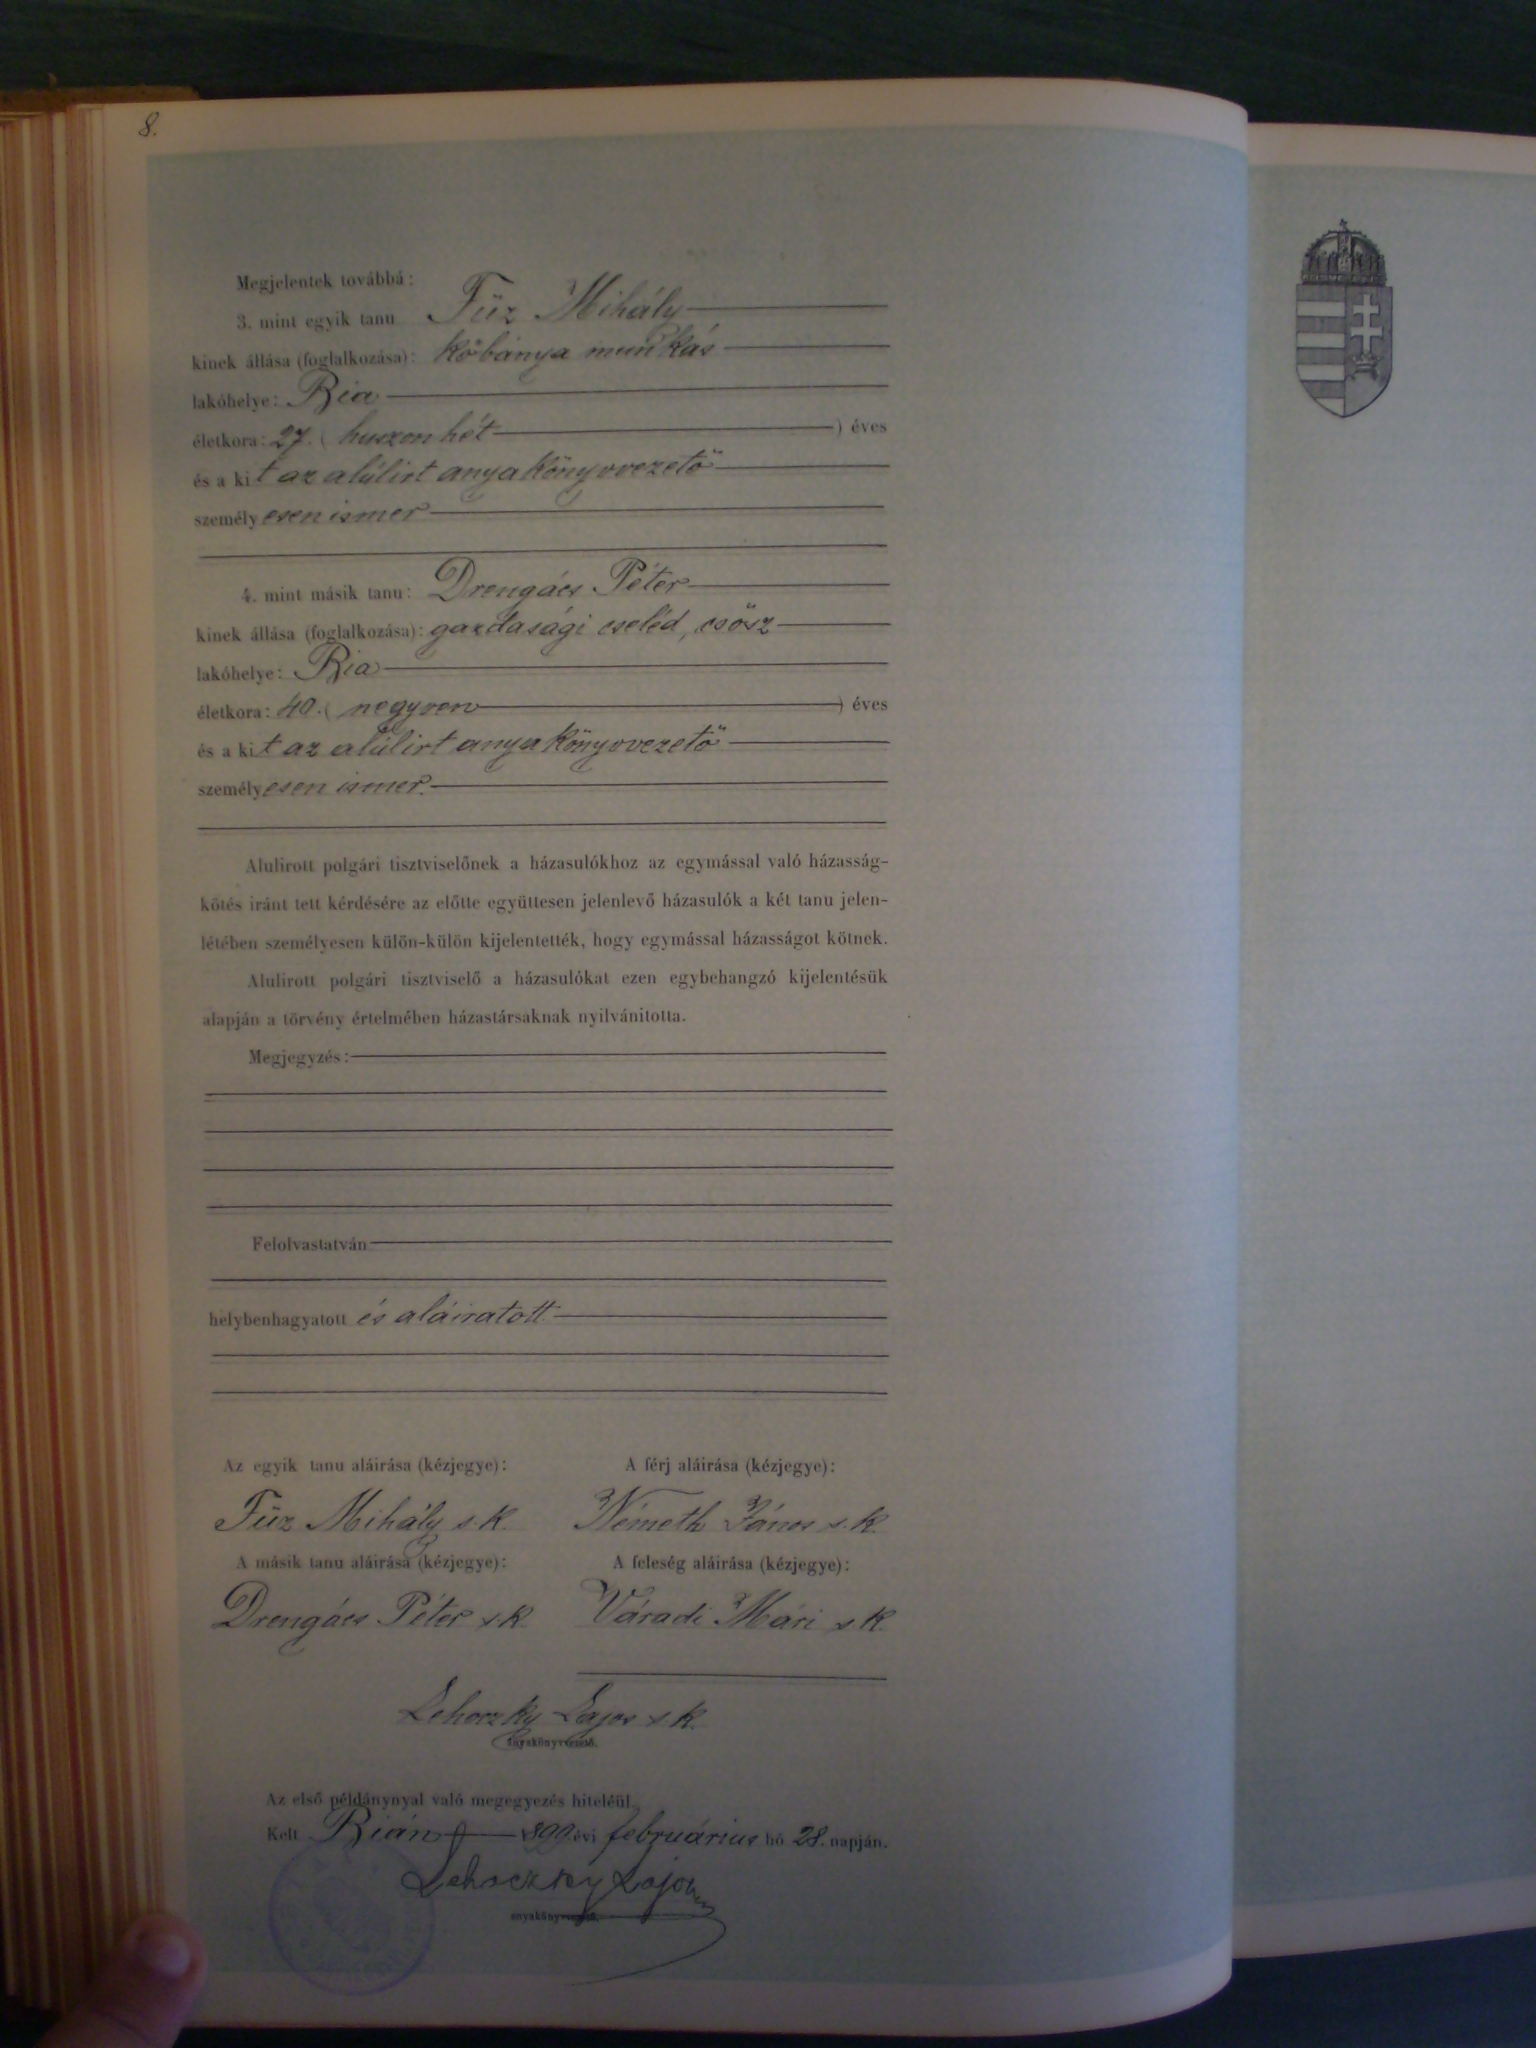 8.
Megjelentek továbbá:
3. mint egyik tanu Füz Mihály
kinek állása (foglalkozása): kőbánya munkás
lakóhelye: Bia
életkora: 27. ( huszonhét ) éves
és a kit az alúlirt anyakönyvvezető
személyesen ismer
4. mint másik tanu: Drengács Péter
kinek állása (foglalkozása): gazdasági cseléd, csősz
lakóhelye: Bia
életkora: 40. ( negyven ) éves
és a kit az alúlirt anyakönyvvezető
személyesen ismer.
Alulirott polgári tisztviselőnek a házasulókhoz az egymással való házasság-
kötés iránt tett kérdésére az előtte együttesen jelenlevő házasulók a két tanu jelen-
létében személyesen külön-külön kijelentették, hogy egymással házasságot kötnek.
Alulirott polgári tisztviselő a házasulókat ezen egybehangzó kijelentésük
alapján a törvény értelmében házastársaknak nyilvánitotta.
Megjegyzés:
Felolvastatván
helybenhagyatott és aláiratott
Az egyik tanu aláirása (kézjegye): A férj aláirása (kézjegye):
Füz Mihály s. k. Németh János s. k.
A másik tanu aláirása (kézjegye): A feleség aláirása (kézjegye):
Drengács Péter s. k. Váradi Mári s. k.
Lehoczky Lajos s. k.
anyakönyvvezető.
Az első példánynyal való megegyezés hiteléül
Kelt Bián 1899 évi február​ius hó 28. napján.
Lehoczky Lajos
anyakönyvvezető.